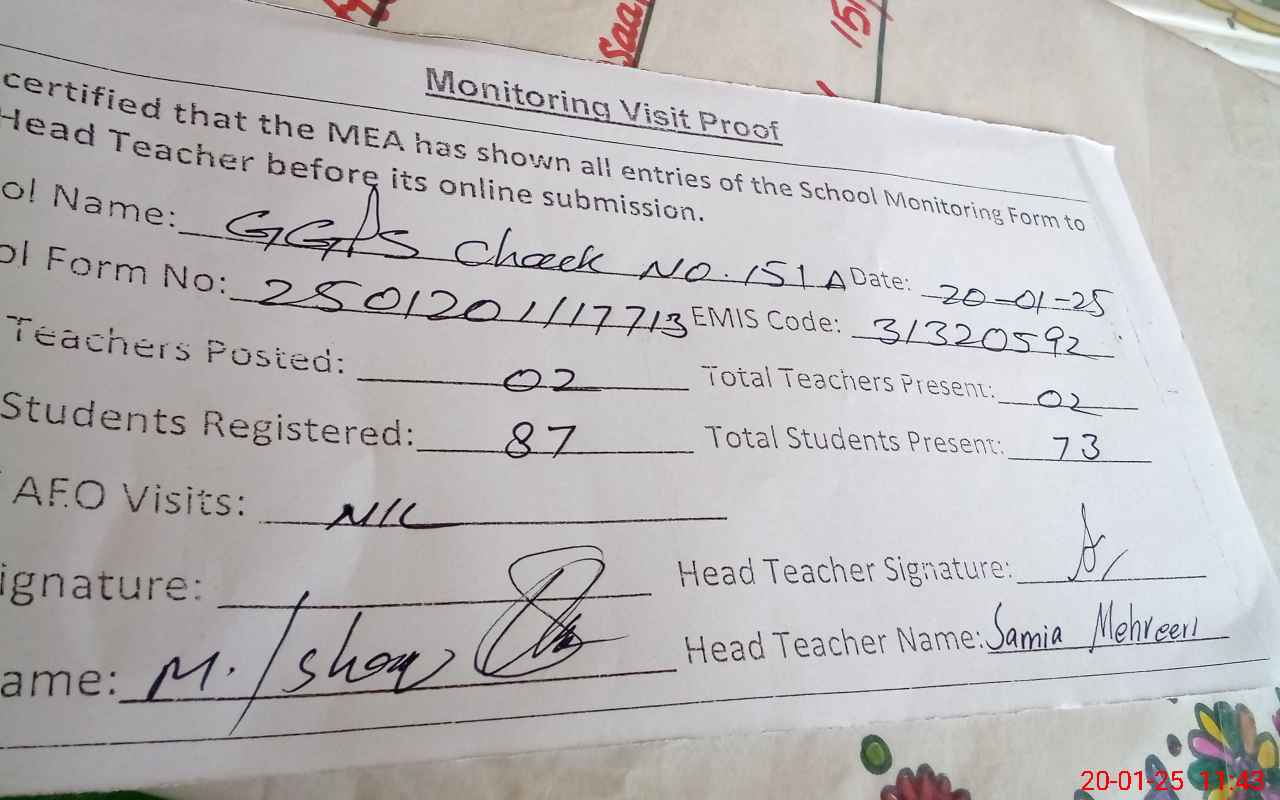 Saa
151
Monitoring Visit Proof
certified that the MEA has shown all entries of the School Monitoring Form to
Head Teacher before its online submission.
ol Name: GGPS Chack No. 151 A Date: 20-01-25
ol Form No: 2501201117713 EMIS Code: 31320592
Teachers Posted: 02 Total Teachers Present: 02
Students Registered: 87 Total Students Present: 73
AEO Visits: NIL
ignature: Head Teacher Signature:
ame: M. Head Teacher Name: Samia Mehreen
20-01-25 11:43